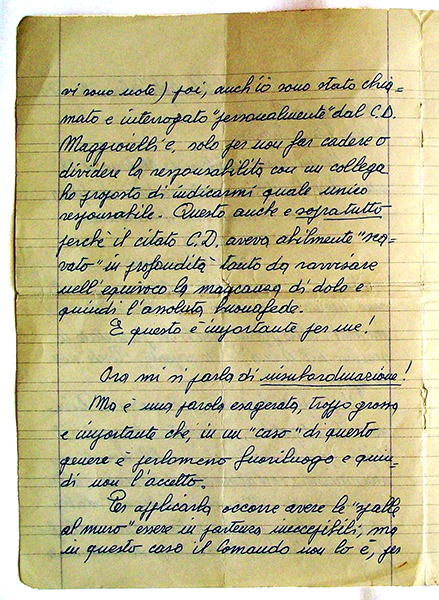 vi sono note) poi, anch'io sono stato chia=
mato e interrogato "personalmente" dal C.D.
Maggiorelli e, solo per non far cadere o
dividere la responsabilità con un collega
ho proposto di indicarmi quale unico
responsabile. Questo anche e sopratutto
perchè il citato C.D. aveva abilmente "sca=
vato" in profondità tanto da ravvisare
nell'equivoco la mancanza di dolo e
quindi l'assoluta buonafede.
E questo è importante per me!
Ora mi si parla di insubordinazione!
Ma è una parola esagerata, troppo grossa
e importante che, in un "caso" di questo
genere è perlomeno fuoriluogo e quin=
di non l'accetto.
Per applicarla occorre avere le "spalle
al muro" essere in partenza ineccepibili, ma
in questo caso il Comando non lo è, per